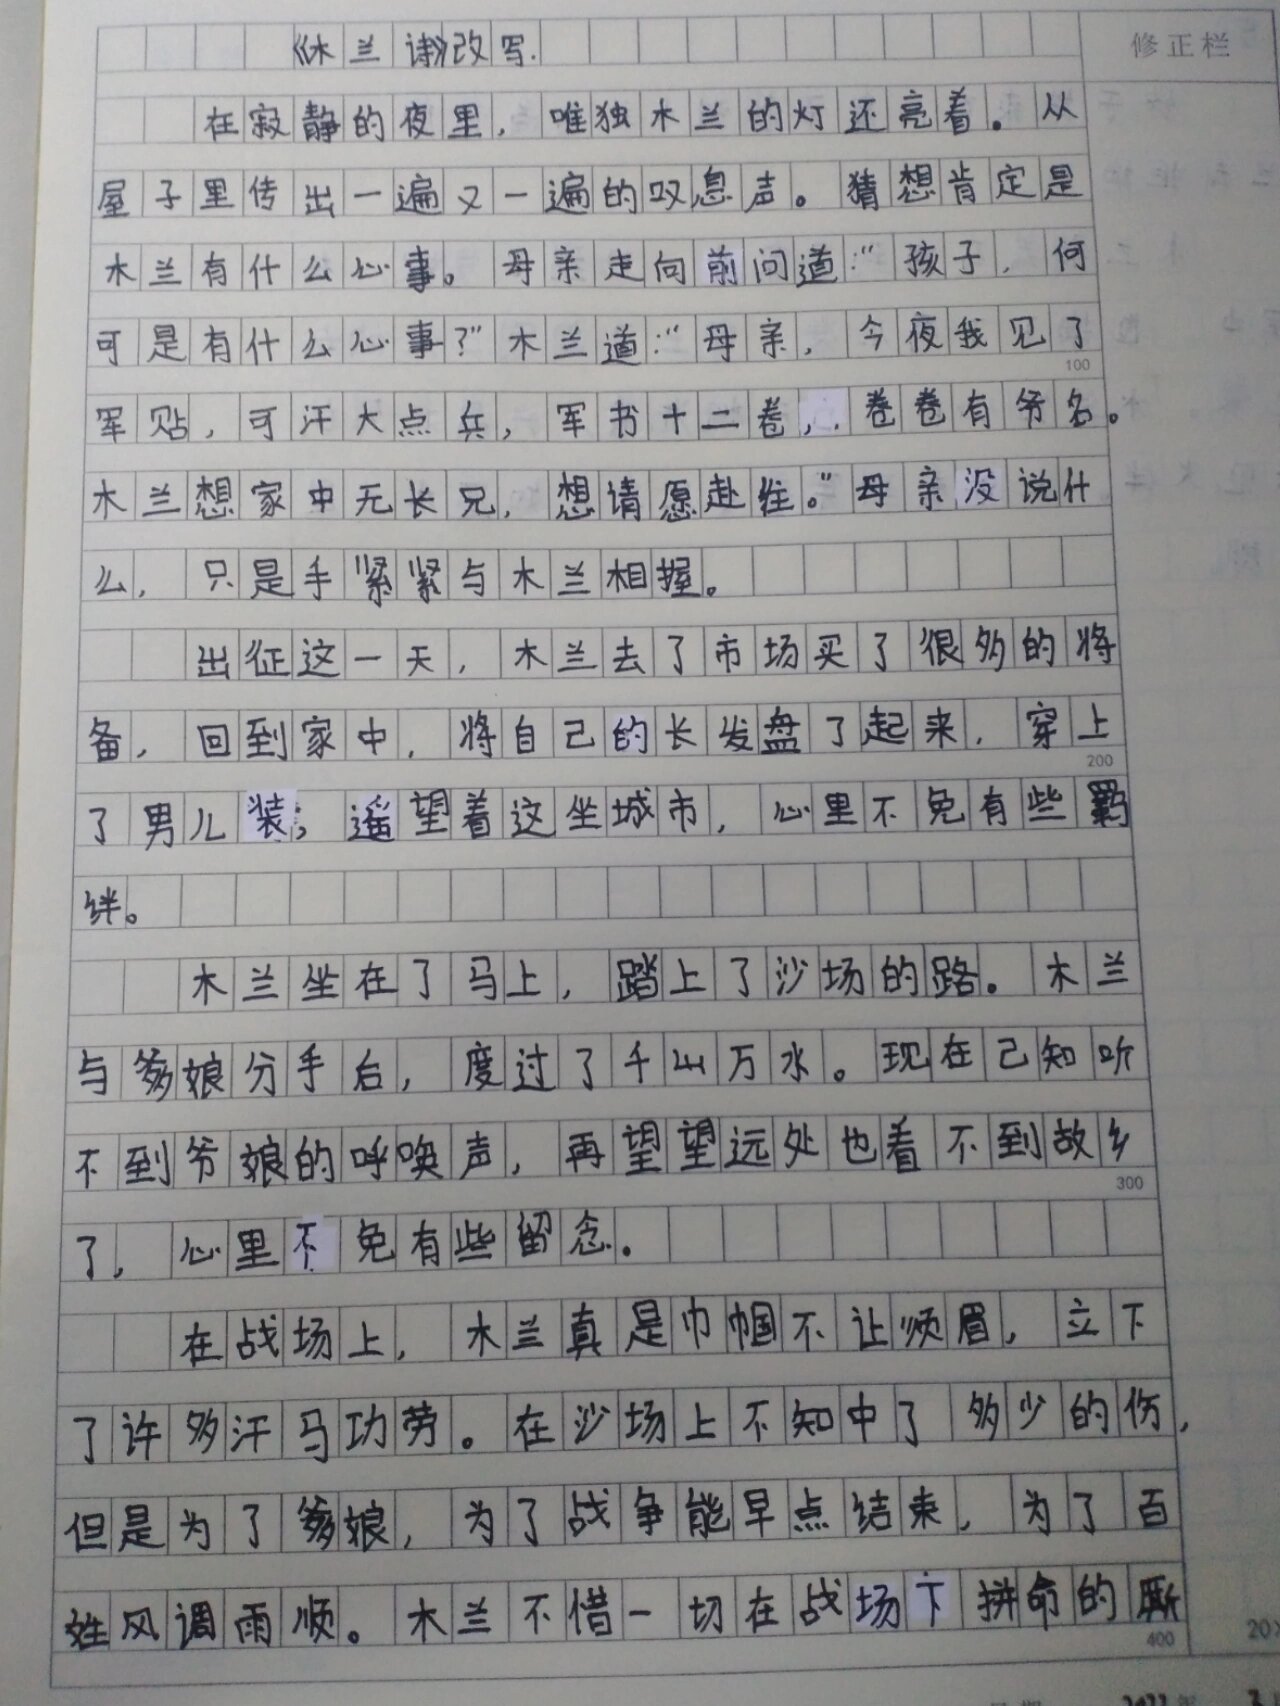 《木兰诗》改写.
修正栏
在寂静的夜里，唯独木兰的灯还亮着。从
屋子里传出一遍又一遍的叹息声。猜想肯定是
木兰有什么心事。母亲走向前问道：“孩子，何
可是有什么心事？”木兰道：“母亲，今夜我见了
100
军贴，可汗大点兵，军书十二卷，卷卷有爷名。
木兰想家中无长兄，想请愿赴往。”母亲没说什
么，只是手紧紧与木兰相握。
出征这一天，木兰去了市场买了很多的将
备，回到家中，将自己的长发盘了起来，穿上
200
了男儿装；遥望着这坐城市，心里不免有些羁
绊。
木兰坐在了马上，踏上了沙场的路。木兰
与爹娘分手后，度过了千山万水。现在己知听
不到爷娘的呼唤声，再望望远处也着不到故乡
300
了，心里不免有些留念。
在战场上，木兰真是巾帼不让须眉，立下
了许多汗马功劳。在沙场上不知中了多少的伤，
但是为了爹娘，为了战争能早点结束，为了百
姓风调雨顺。木兰不惜一切在战场下拼命的厮
400